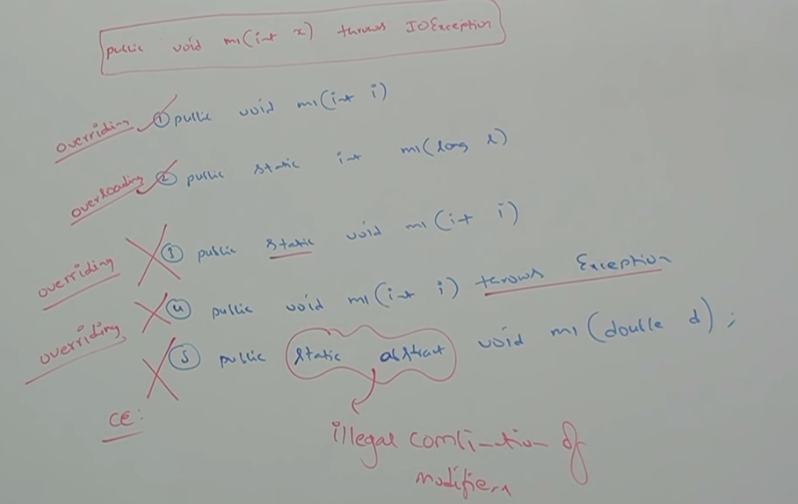 public void m1(int x) throws IOException
overriding ① public void m1(int i)
overloading ② public static int m1(long l)
overriding ③ public static void m1(int i)
overriding ④ public void m1(int i) throws Exception
⑤ public static abstract void m1(double d);
CE:
illegal combination of
modifiers